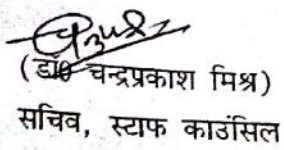 (डा० चन्द्रप्रकाश मिश्र)
सचिव, स्टाफ काउंसिल